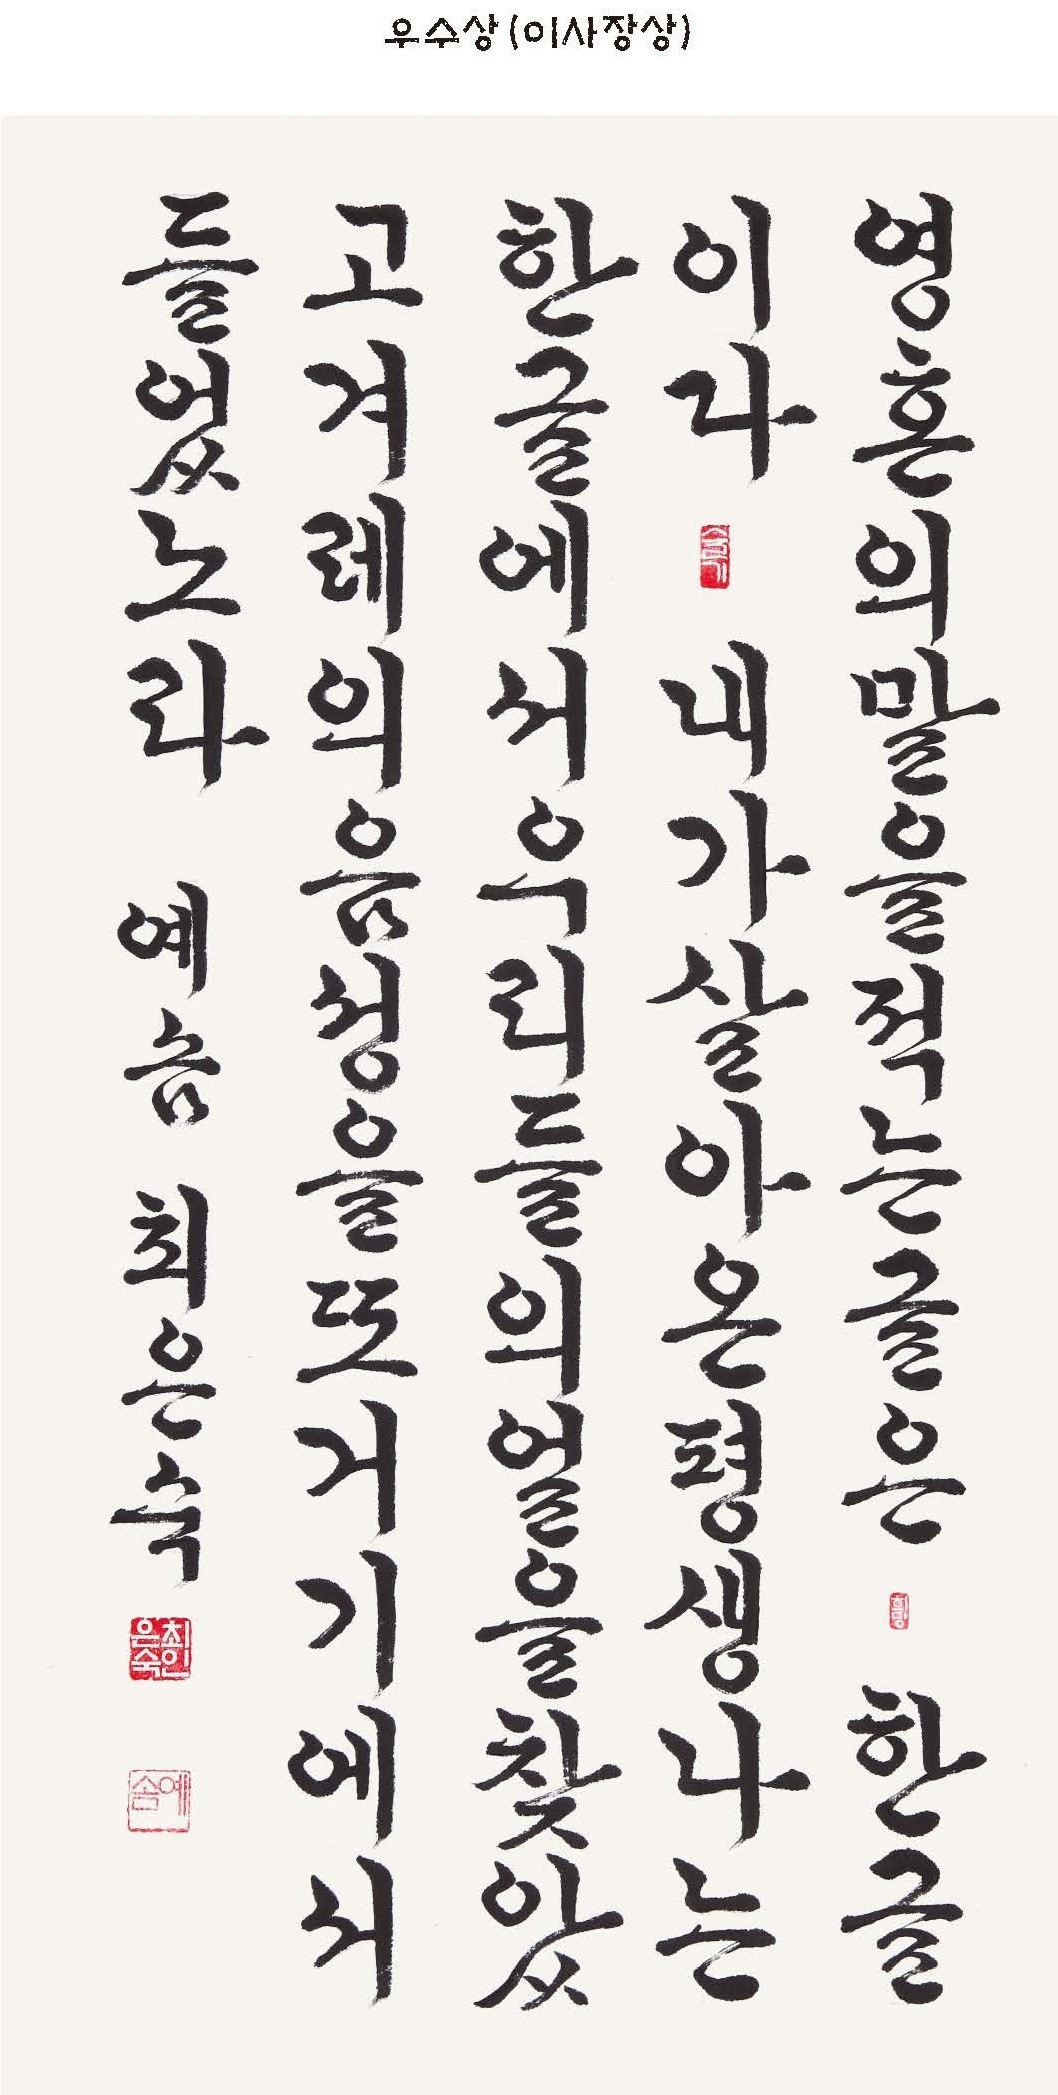 우수상(이사장상)
영혼의말을적는글은 한글
이다 내가살아온평생나는
한글에서우리들의얼을찾았
고겨레의음성을또거기에서
들었노라 예솜 최은숙
최인은숙
예솜